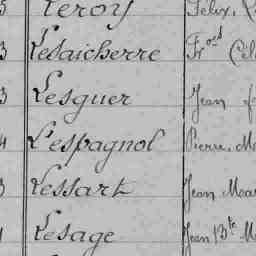 5 Leroy Félix,
3 Lesaicherre Fr
3 Lesquer Jean
4 Lespagnol Pierre, M
3 Lessart Jean Mar
Lesage Jean Bte M